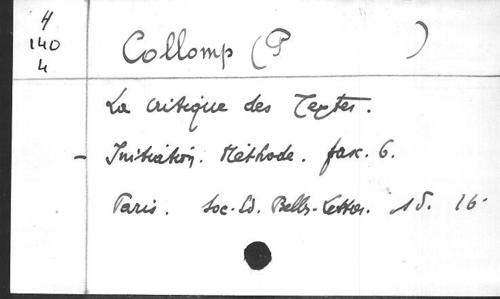 4
140
4
Collomp (P )
La critique des Textes.
- Initiation. Méthode. fasc. 6.
Paris. Soc. Ed. Belles-Lettres. 16.